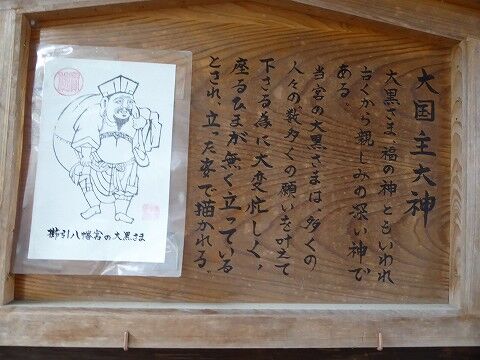 大国主大神
大黒さま 福の神 ともいわれ
古くから親しみの深い神で
ある。
当宮の大黒さまは、多くの
人々の数多くの願いを叶えて
下さる為に大変忙しく、
座るひまが無く立っている
とされ、立った姿で描かれる。
櫛引八幡宮の大黒さま